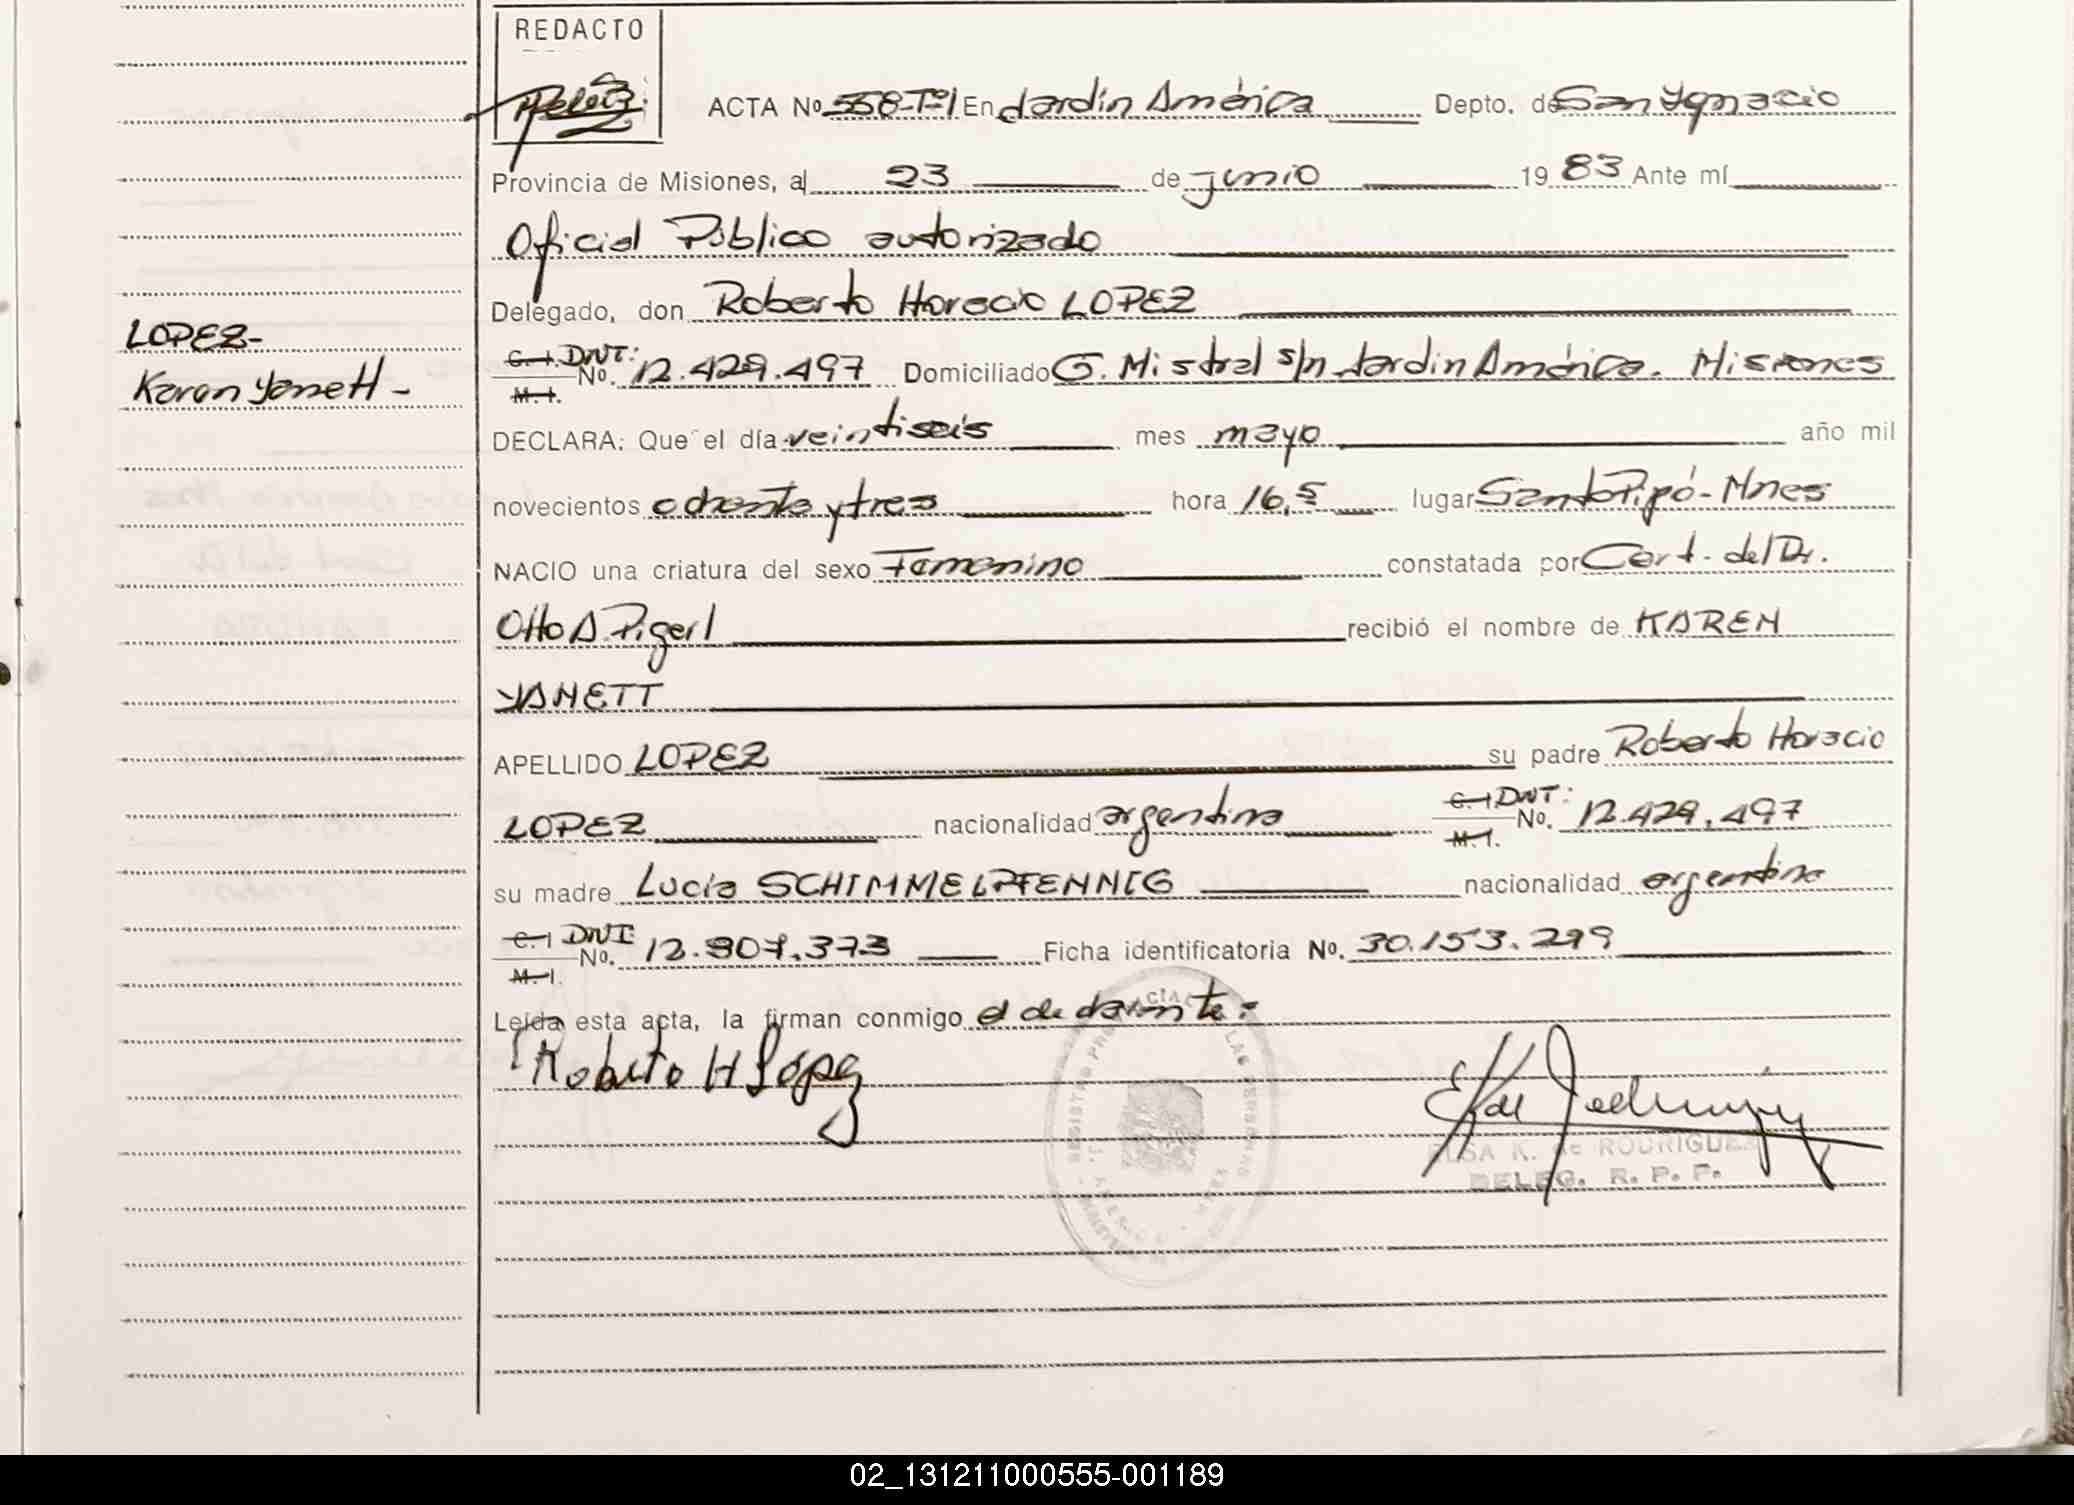 REDACTO
ACTA Nº 558-Tº1 En Jardín América Depto. de San Ygnacio
Provincia de Misiones, al 23 de junio 1983 Ante mí
Oficial Público autorizado
Delegado, don Roberto Horacio LOPEZ
LOPEZ-
Karen Yanett-
C.I. DNI:
M.I. No. 12.429.497 Domiciliado G. Mistral s/n Jardín América. Misiones
DECLARA: Que el día veintiseis mes mayo año mil
novecientos ochenta y tres hora 16,5 lugar Santo Pipó-Mnes
NACIO una criatura del sexo Femenino constatada por Cert. del Dr.
Otto A. Pigerl recibió el nombre de KAREN
YANETT
APELLIDO LOPEZ su padre Roberto Horacio
LOPEZ nacionalidad argentina C.I DNI: M.I. No. 12.429.497
su madre Lucía SCHIMMELPFENNIG nacionalidad argentina
C.I DNI: M.I. No. 12.907.373 Ficha identificatoria No. 30.153.299
Leída esta acta, la firman conmigo el declarante:
Roberto H López
REGISTRO LAS PERSONAS
ELSA K. de RODRIGUEZ
DELEG. R. P. P.
02_131211000555-001189